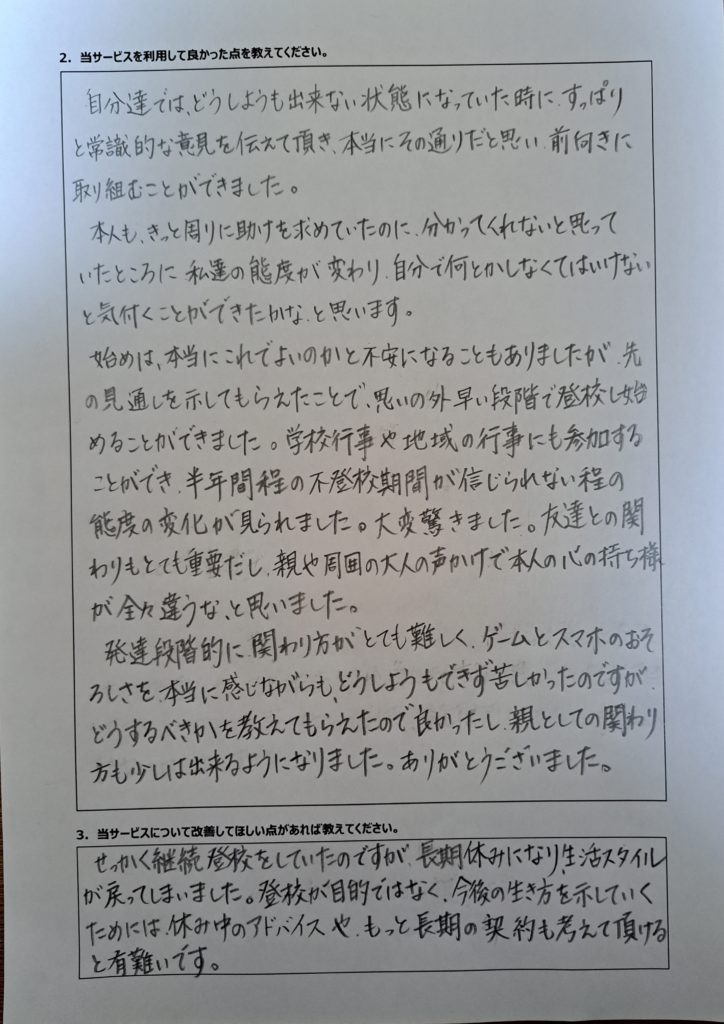 2．当サービスを利用して良かった点を教えてください。
自分達では、どうしようも出来ない状態になっていた時に、すっぱり
と常識的な意見を伝えて頂き、本当にその通りだと思い、前向きに
取り組むことができました。
本人も、きっと周りに助けを求めていたのに、分かってくれないと思って
いたところに 私達の態度が変わり、自分で何とかしなくてはいけない
と気付くことができたかな、と思います。
始めは、本当にこれでよいのかと不安になることもありましたが、先
の見通しを示してもらえたことで、思いの外早い段階で登校し始
めることができました。学校行事や地域の行事にも参加する
ことができ、半年間程の不登校期間が信じられない程の
態度の変化が見られました。大変驚きました。友達との関
わりもとても重要だし、親や周囲の大人の声かけで本人の心の持ち様
が全々違うな、と思いました。
発達段階的に、関わり方がとても難しく、ゲームとスマホのおそ
ろしさを、本当に感じながらも、どうしようもできず苦しかったのですが、
どうするべきかを教えてもらえたので良かったし、親としての関わり
方も少しは出来るようになりました。ありがとうございました。
3．当サービスについて改善してほしい点があれば教えてください。
せっかく継続登校をしていたのですが、長期休みになり、生活スタイル
が戻ってしまいました。登校が目的ではなく、今後の生き方を示していく
ためには、休み中のアドバイスや、もっと長期の契約も考えて頂ける
と有難いです。